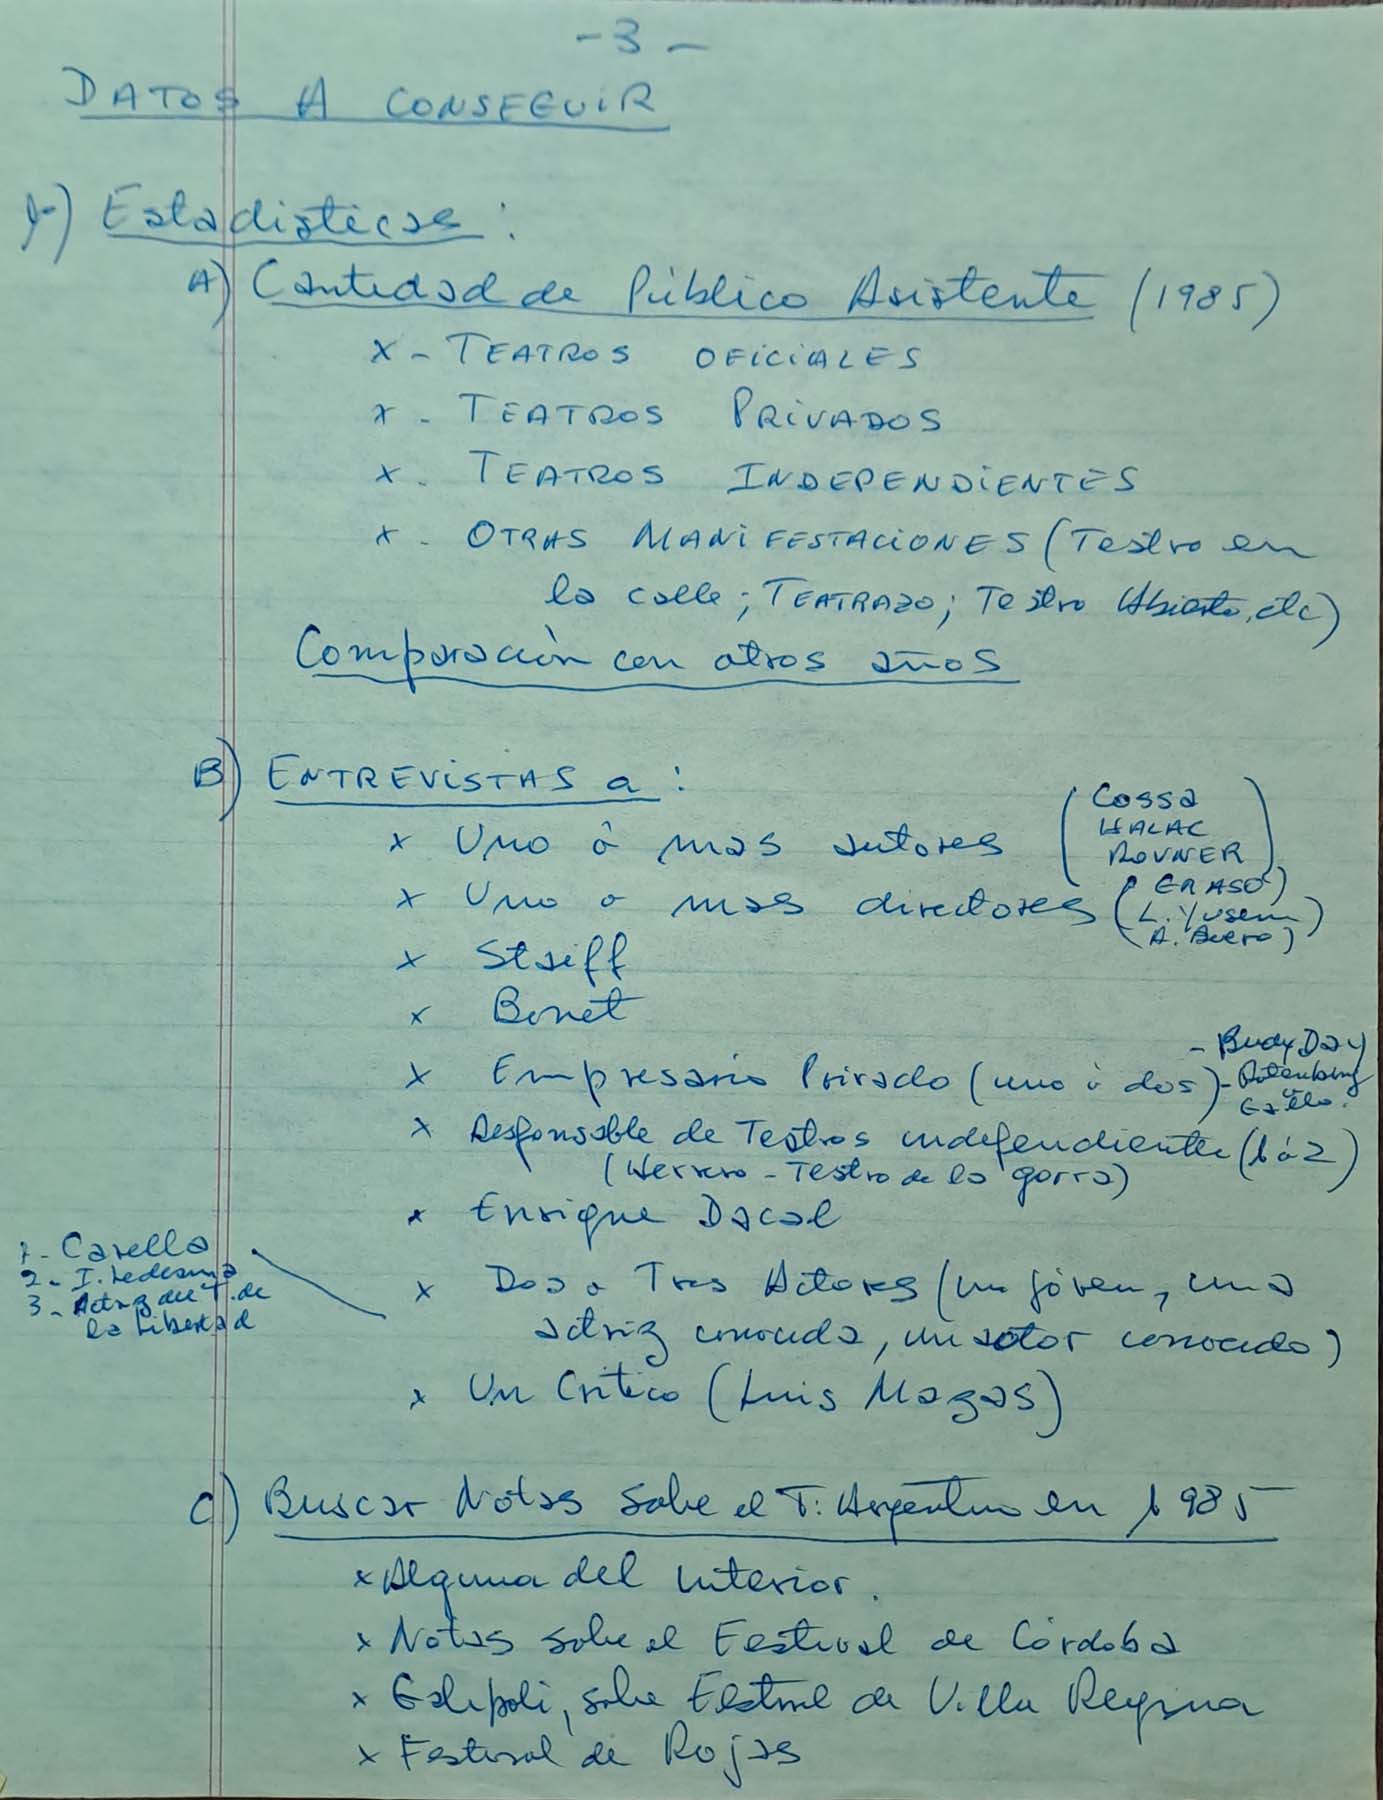 - 3 -
DATOS A CONSEGUIR
1-) Estadisticas:
A) Cantidad de Público Asistente (1985)
x - TEATROS OFICIALES
x - TEATROS PRIVADOS
x - TEATROS INDEPENDIENTES
x - OTRAS MANIFESTACIONES (Teatro en
la calle; TEATRAZO; Teatro Abierto, etc)
Comparación con otros años
B) ENTREVISTAS a:
x Uno ó mas autores (Cossa
HALAC
ROVNER)
x Uno o mas directores (ERASO)
(L. Yusem)
(A. Buero)
x Staiff
x Bonet
x Empresario Privado (uno ó dos) - Budy Day
- Rotenberg
Gallo.
x Responsable de Teatros independiente (1 ó 2)
(Herrero - Teatro de la gorra)
x Enrique Dacal
1- Carella
2- I. Ledesma
3- Actriz del T. de
la Libertad
x Dos o Tres Actores (un jóven, una
actriz conocida, un actor conocido)
x Un Crítico (Luis Mazas)
C) Buscar Notas sobre el T. Argentino en 1985
x Alguna del interior.
x Notas sobre el Festival de Córdoba
x Galipoli, sobre Festival de Villa Regina
x Festival de Rojas